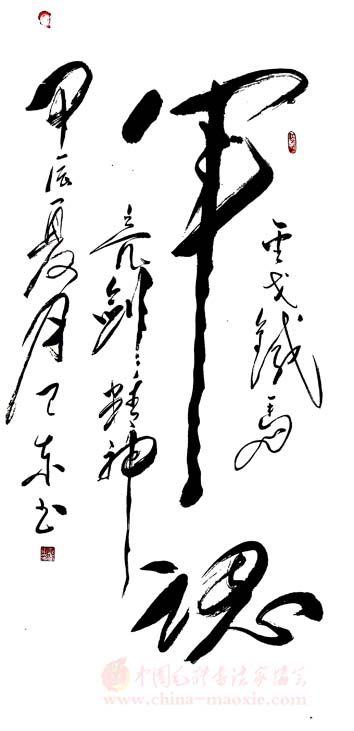 金戈鐵馬
军魂
亮劍精神
甲辰夏月卫东书
中国毛體書法家協会
www.china-maoxie.com